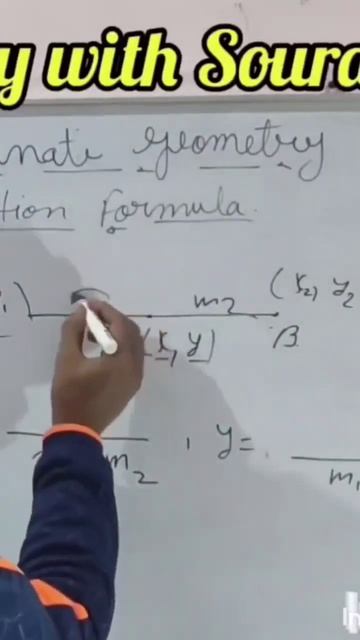 y with Soura
nate Geometry
tion Formula.
m2 (x2, y2
(x, y) B
m2 , y =
m1